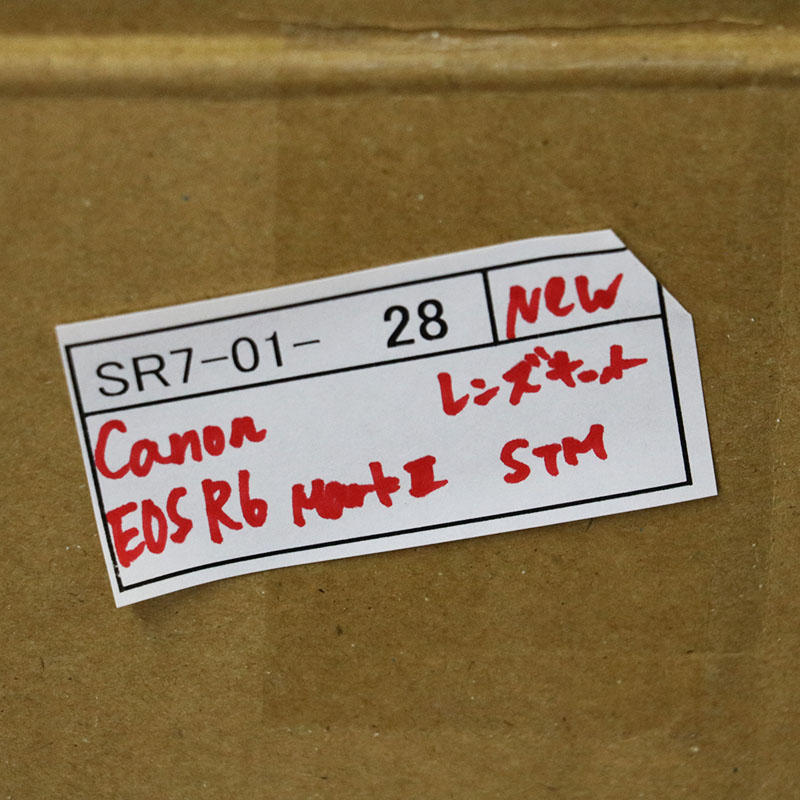 SR7-01- 28 New
Canon レンズキット
EOS R6 Mark II STM